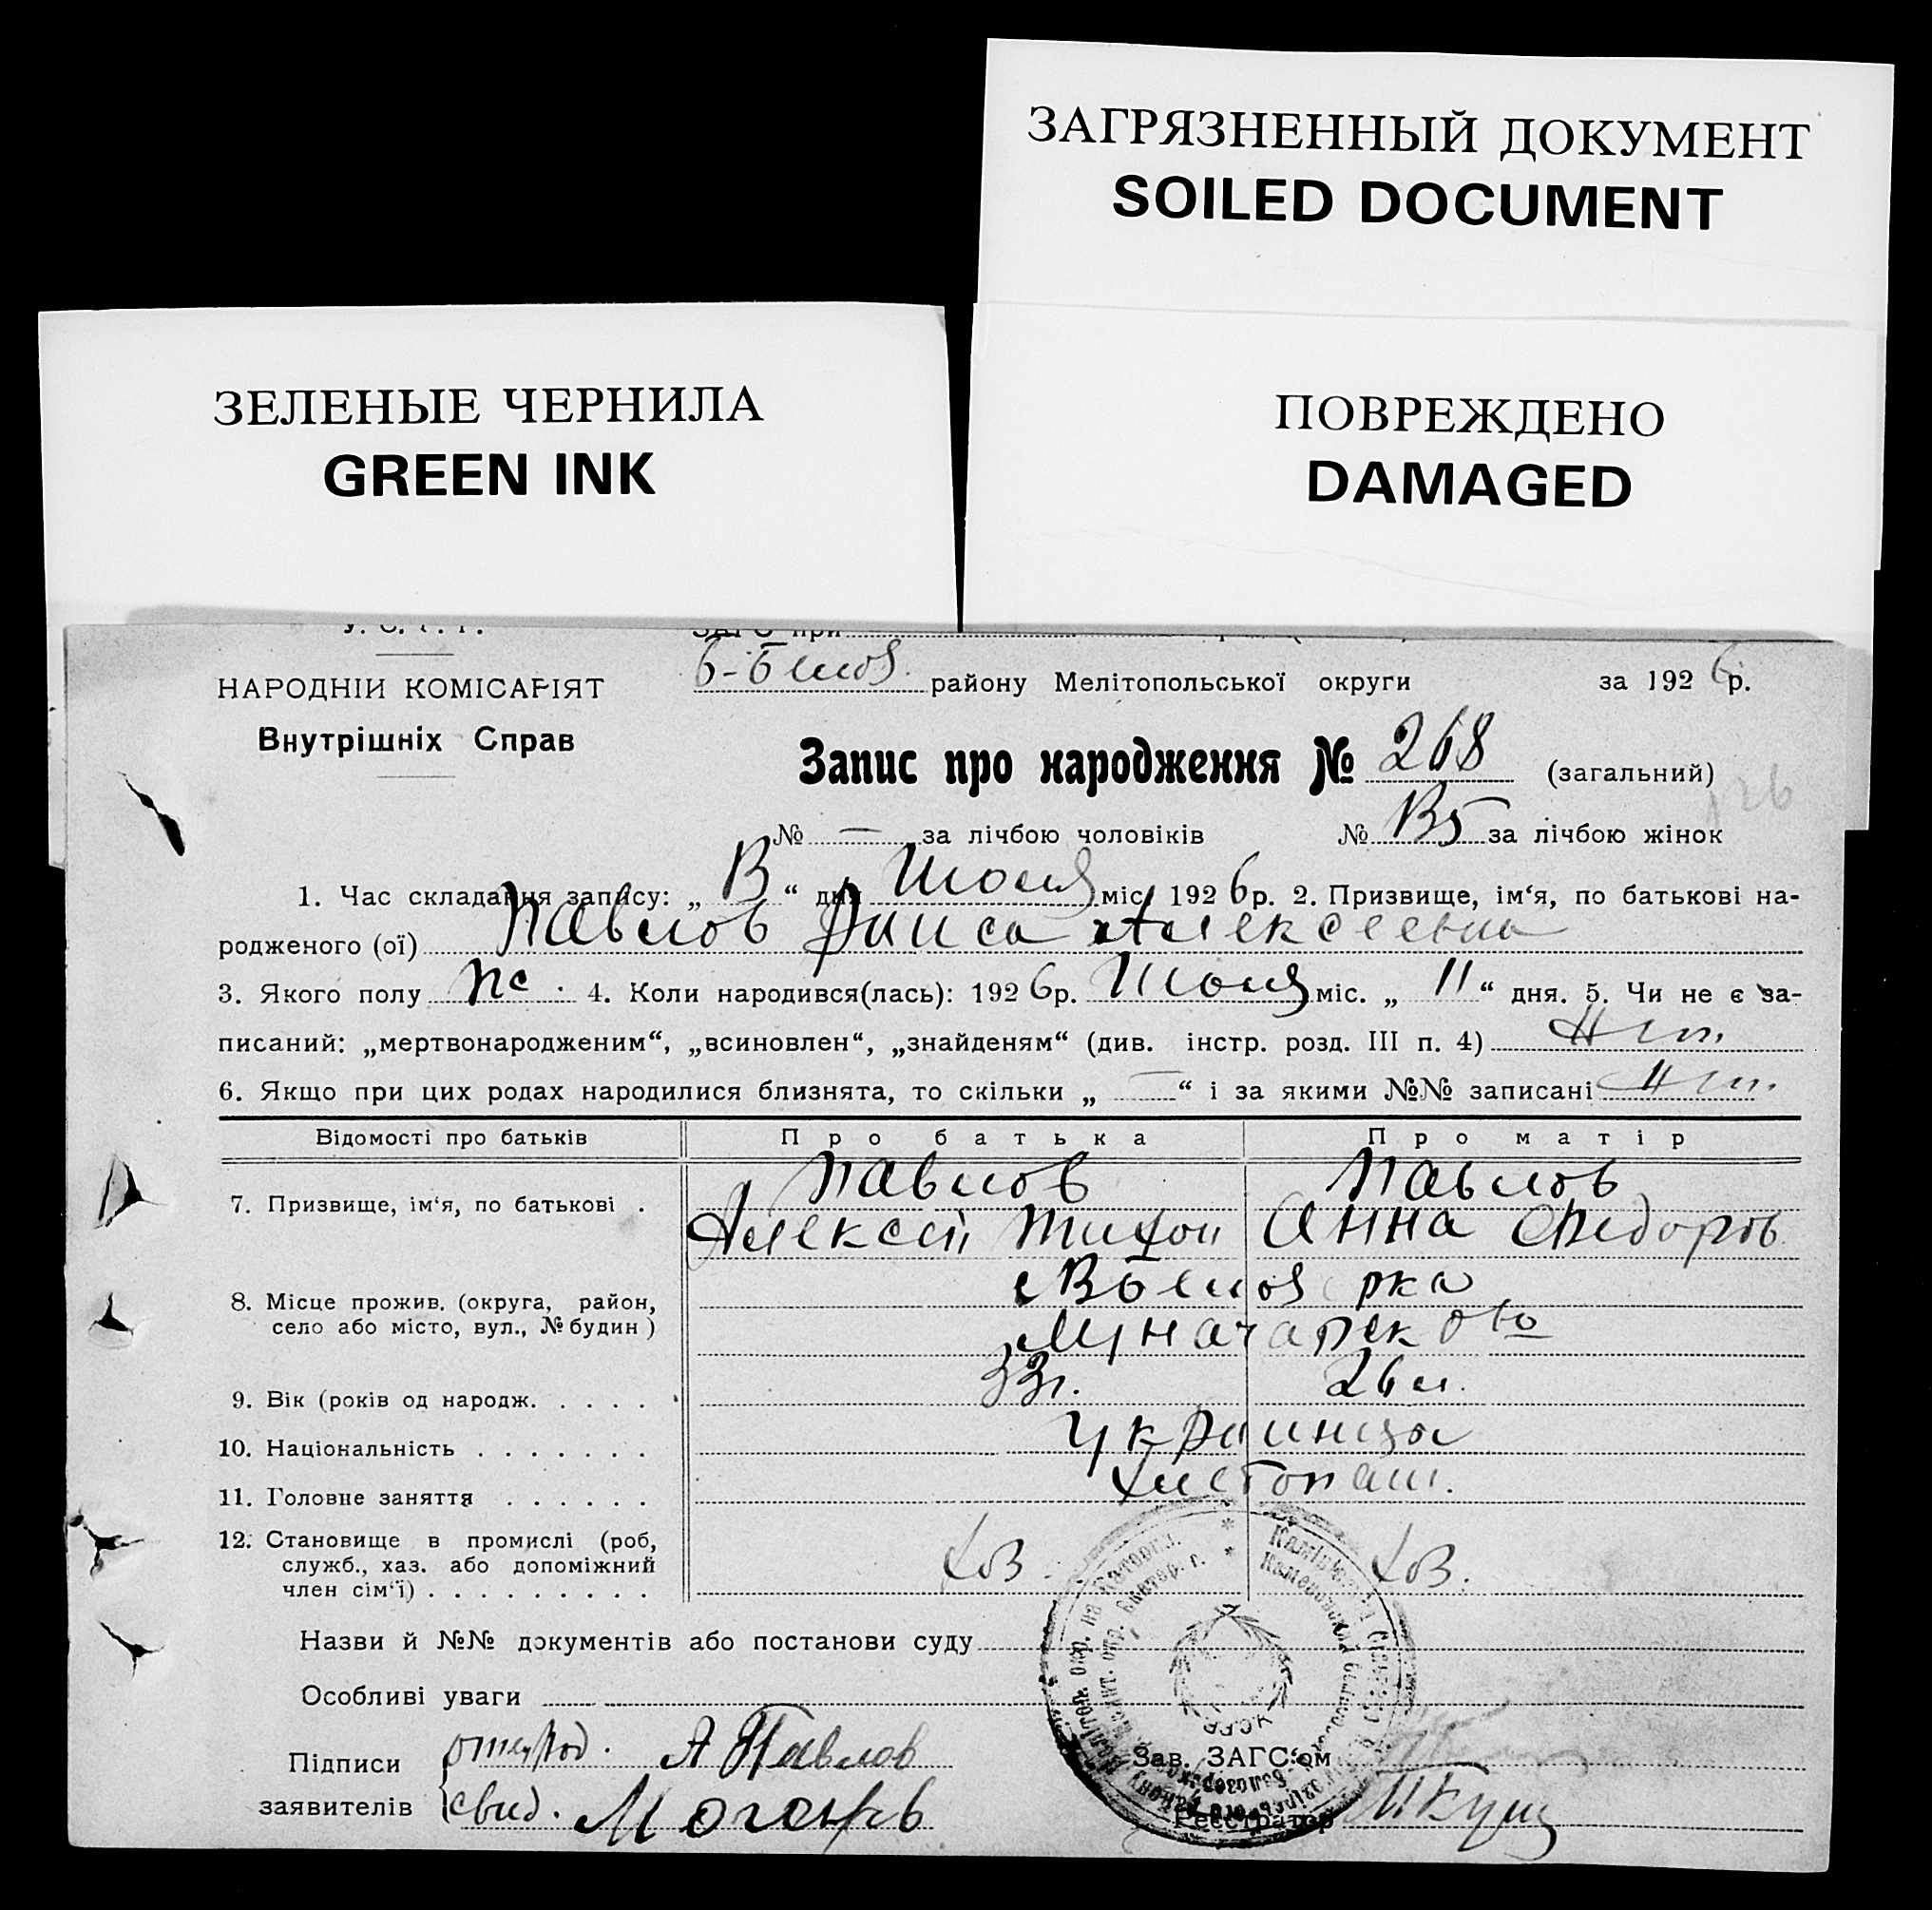 ЗАГРЯЗНЕННЫЙ ДОКУМЕНТ
SOILED DOCUMENT
ЗЕЛЕНЫЕ ЧЕРНИЛА
GREEN INK
ПОВРЕЖДЕНО
DAMAGED
У. С. Р. Р.
ЗАГС при
НАРОДНІЙ КОМІСАРІЯТ
району Мелітопольської округи за 1926 р.
Внутрішніх Справ
Запис про народження № 268 (загальний)
№ — за лічбою чоловіків № за лічбою жінок
1. Час складання запису: „ “ дня Июля міс. 1926 р. 2. Призвище, ім‘я, по батькові на-
родженого (ої) Павлов Раиса Алексеевна
3. Якого полу 4. Коли народився(лась): 1926 р. міс. „ 11 “ дня. 5. Чи не є за-
писаний: „мертвонародженим“, „всиновлен“, „знайденям“ (див. інстр. розд. III п. 4) Нет.
6. Якщо при цих родах народилися близнята, то скільки „ — “ і за якими №№ записані Нет.
Відомості про батьків Про батька Про матір
7. Призвище, ім‘я, по батькові . Павлов Павлов
Алексей Тихон Анна Федоров
8. Місце прожив. (округа, район,
село або місто, вул., № будин )
9. Вік (років од народж. . . . . 33г. 26 л.
10. Національність . . . . . . . Украинцы
11. Головне заняття . . . . . . Хлебопаш.
12. Становище в промислі (роб,
служб., хаз. або допоміжний
член сім‘ї) . . . . . . . . . Хоз. Хоз.
Назви й №№ документів або постанови суду
Особливі уваги
Підписи А Павлов
заявителів свид.
Зав. ЗАГС‘ом
Реєстратор